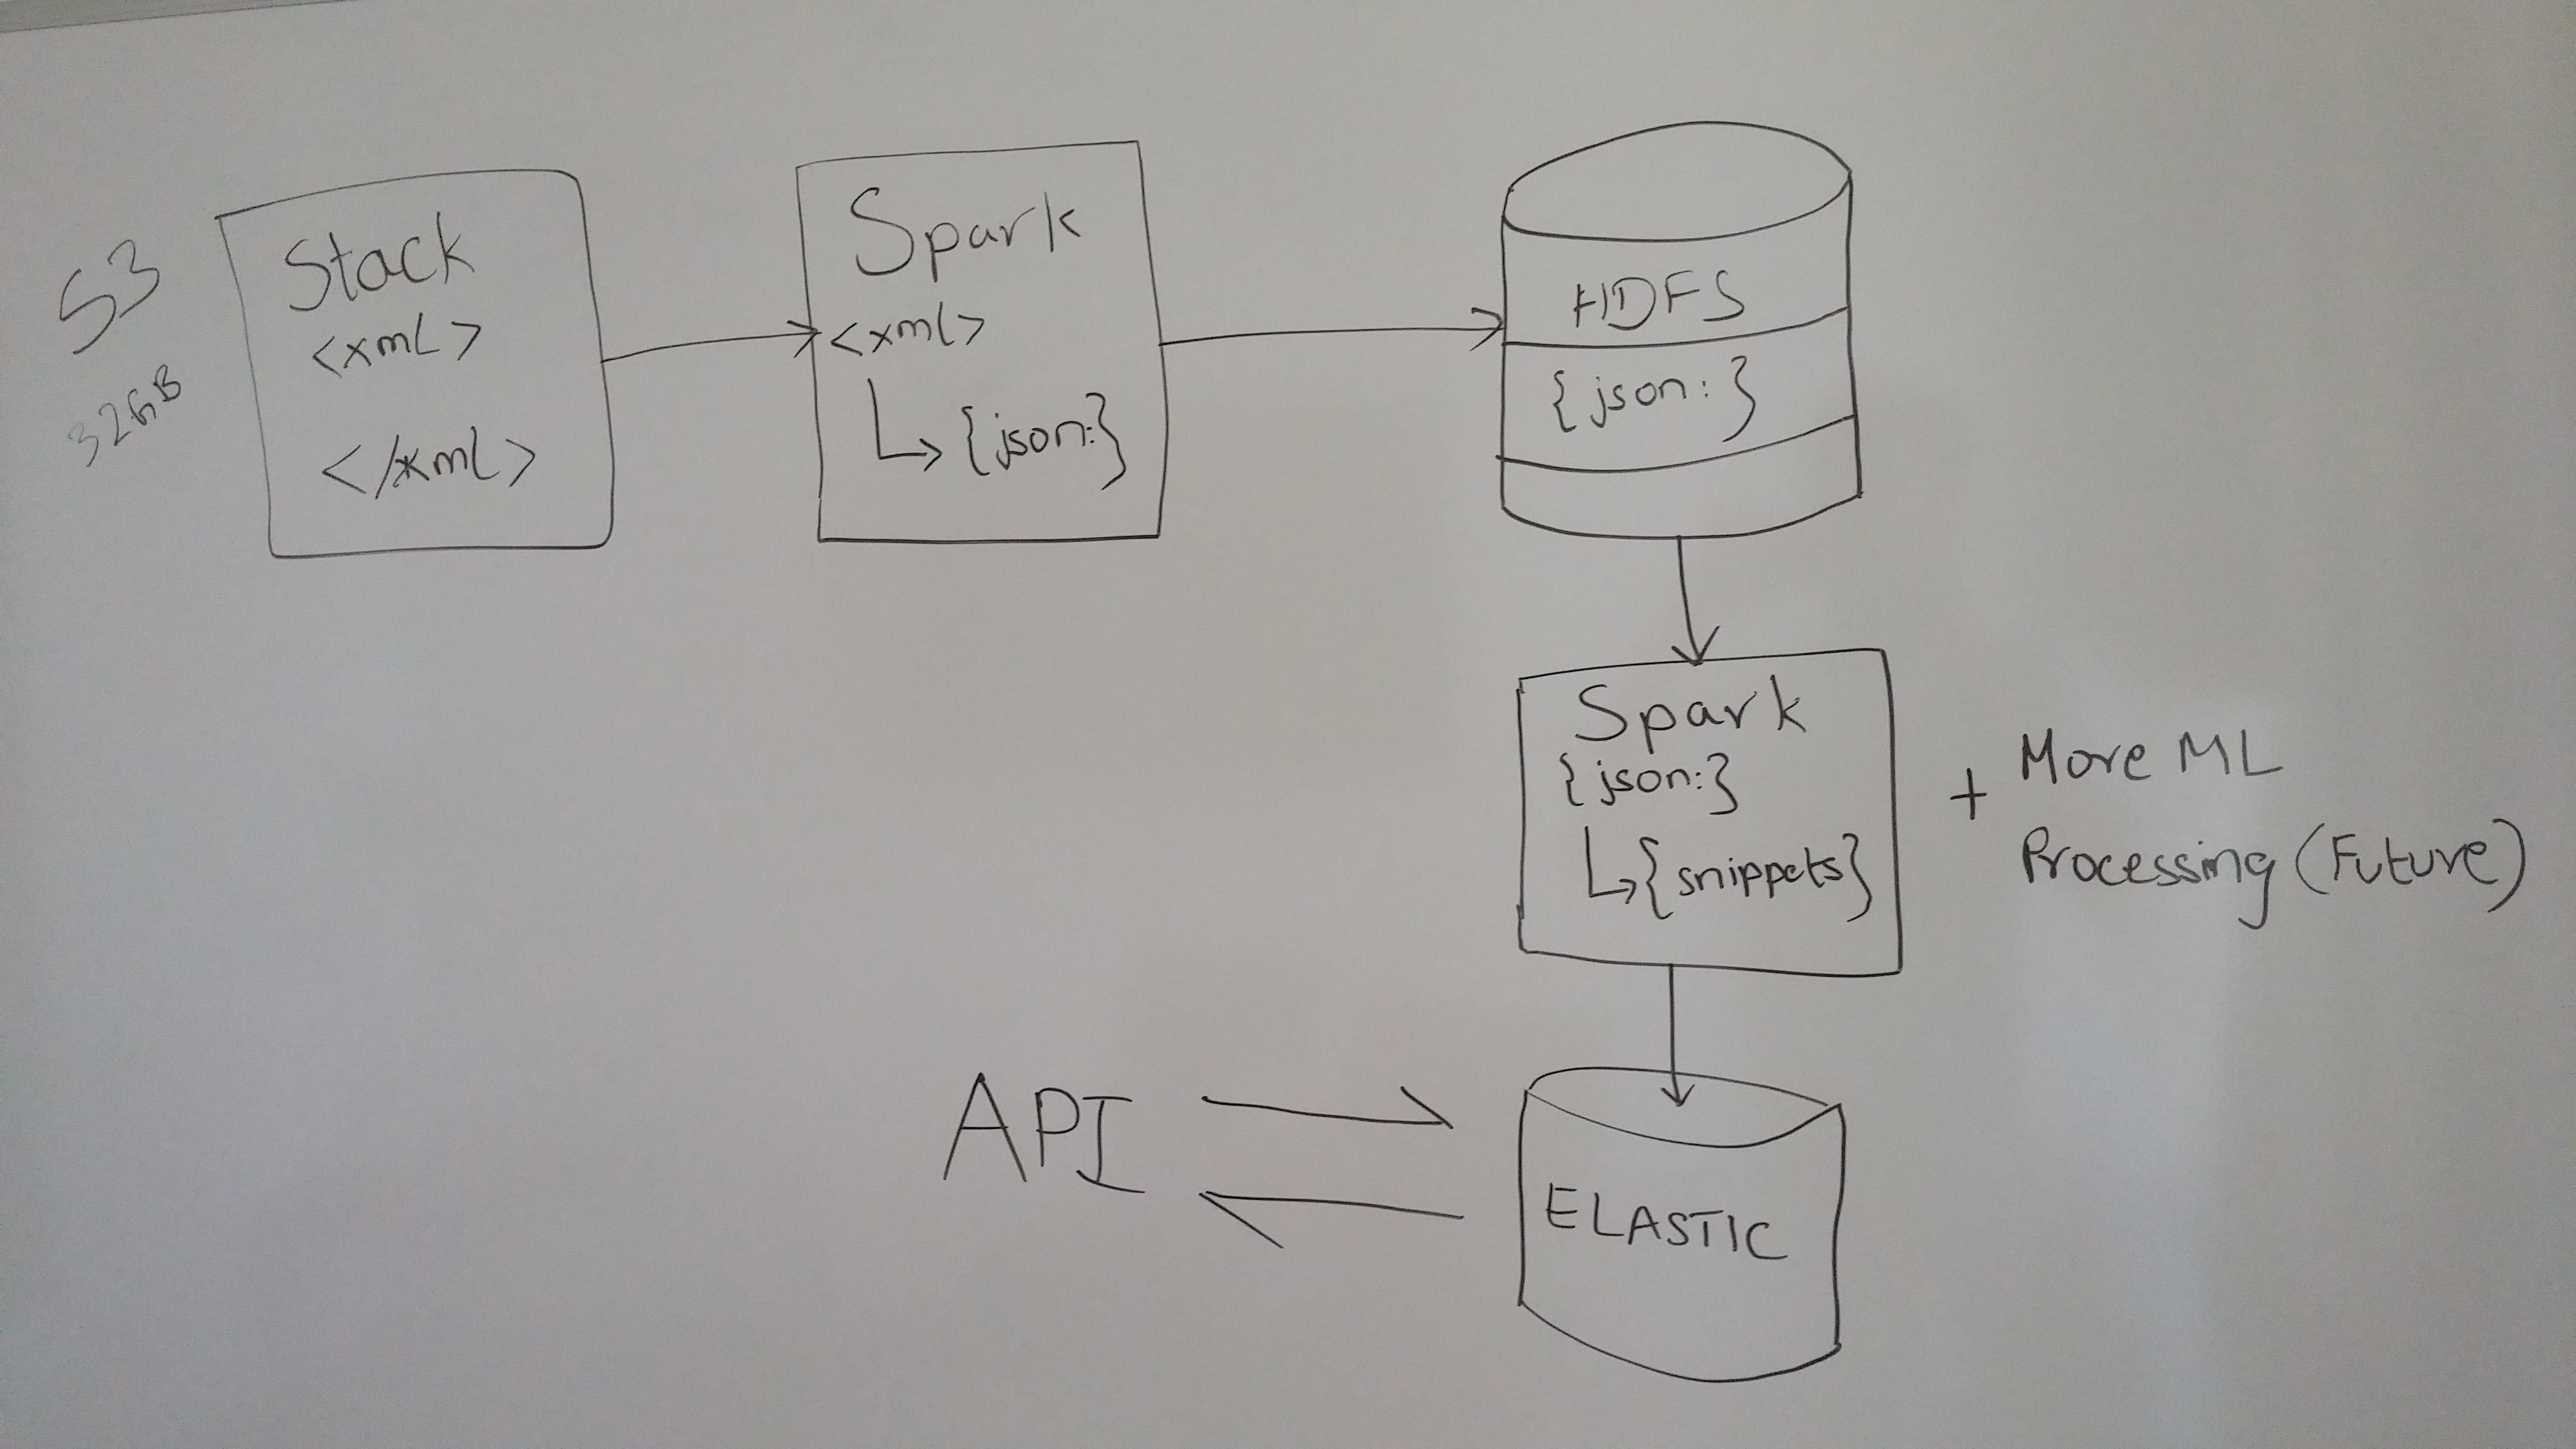 S3
32GB
Stack
<xml>
</xml>
Spark
<xml>
{json:}
HDFS
{json:}
Spark
{json:}
{snippets}
+ More ML
Processing (Future)
API
ELASTIC